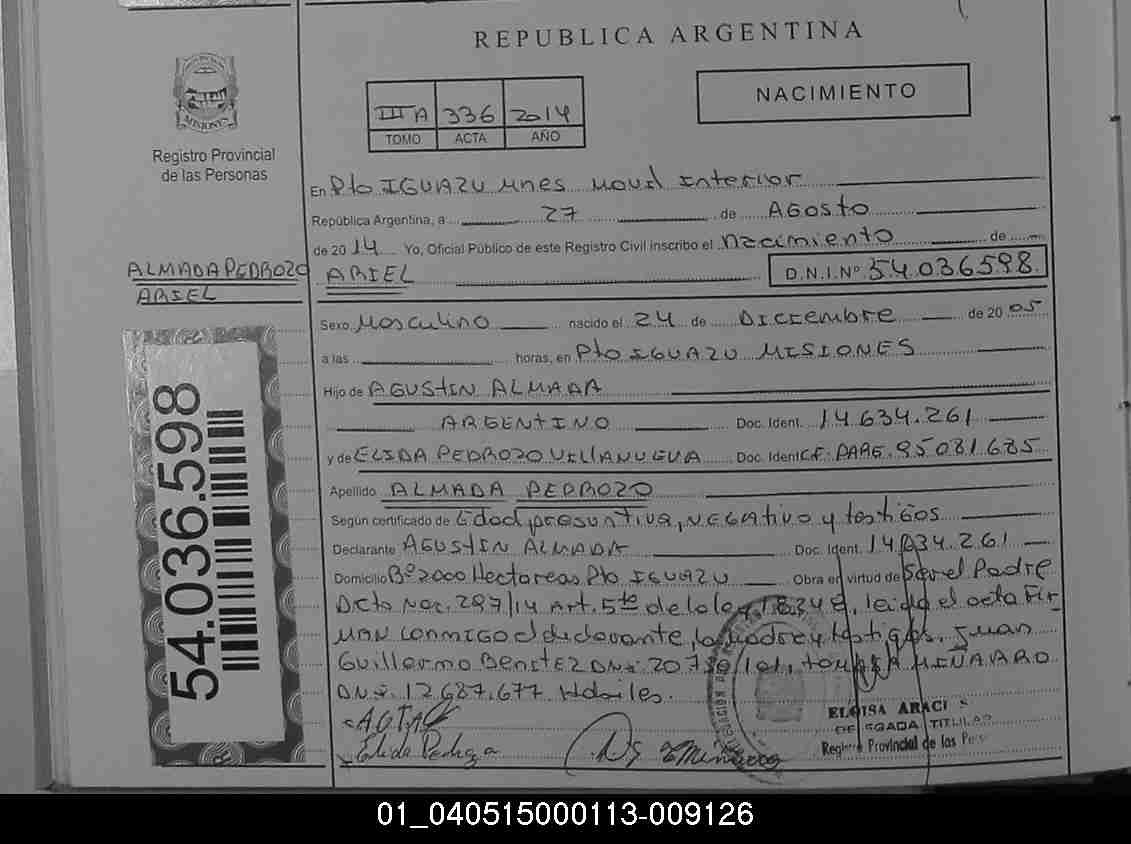 REPUBLICA ARGENTINA
MISIONES
Registro Provincial
de las Personas
III A 336 2014
TOMO ACTA AÑO
NACIMIENTO
En Pto IGUAZU Mnes Movil Interior
República Argentina, a 27 de AGosto
de 2014 Yo, Oficial Público de este Registro Civil inscribo el Nacimiento de
ALMADA PEDROZO
ARIEL
ARIEL
D.N.I.Nº 54.036598.
Sexo Masculino nacido el 24 de Diciembre de 2005
a las horas, en Pto IGUAZU MISIONES
Hijo de AGUSTIN ALMADA
ARGENTINO Doc. Ident. 14.634.261
y de ELIDA PEDROZO VILLANUEVA Doc. Ident CF. PARE. 95081685
Apellido ALMADA PEDROZO
Según certificado de Edad presuntiva, NEGAtivo y testiGos
Declarante AGUSTIN ALMADA Doc. Ident. 14634.261
Domicilio Bº 2000 Hectareas Pto IGUAZU Obra en virtud de Ser el Padre
Dcto Nac. 297/14 Art. 5to de la ley 18248, leida el acta Fir
MAN conmigo el declarante, la madre y testigos, Juan
Guillermo BenitEZ DNI. 20730101, tomasA MIÑARRO
DNI. 12.687.677 Habiles.
54.036.598
Elida Pedroza
ELOISA ARACI
DELEGADA TITULAR
Registro Provincial de las Pers
01_040515000113-009126